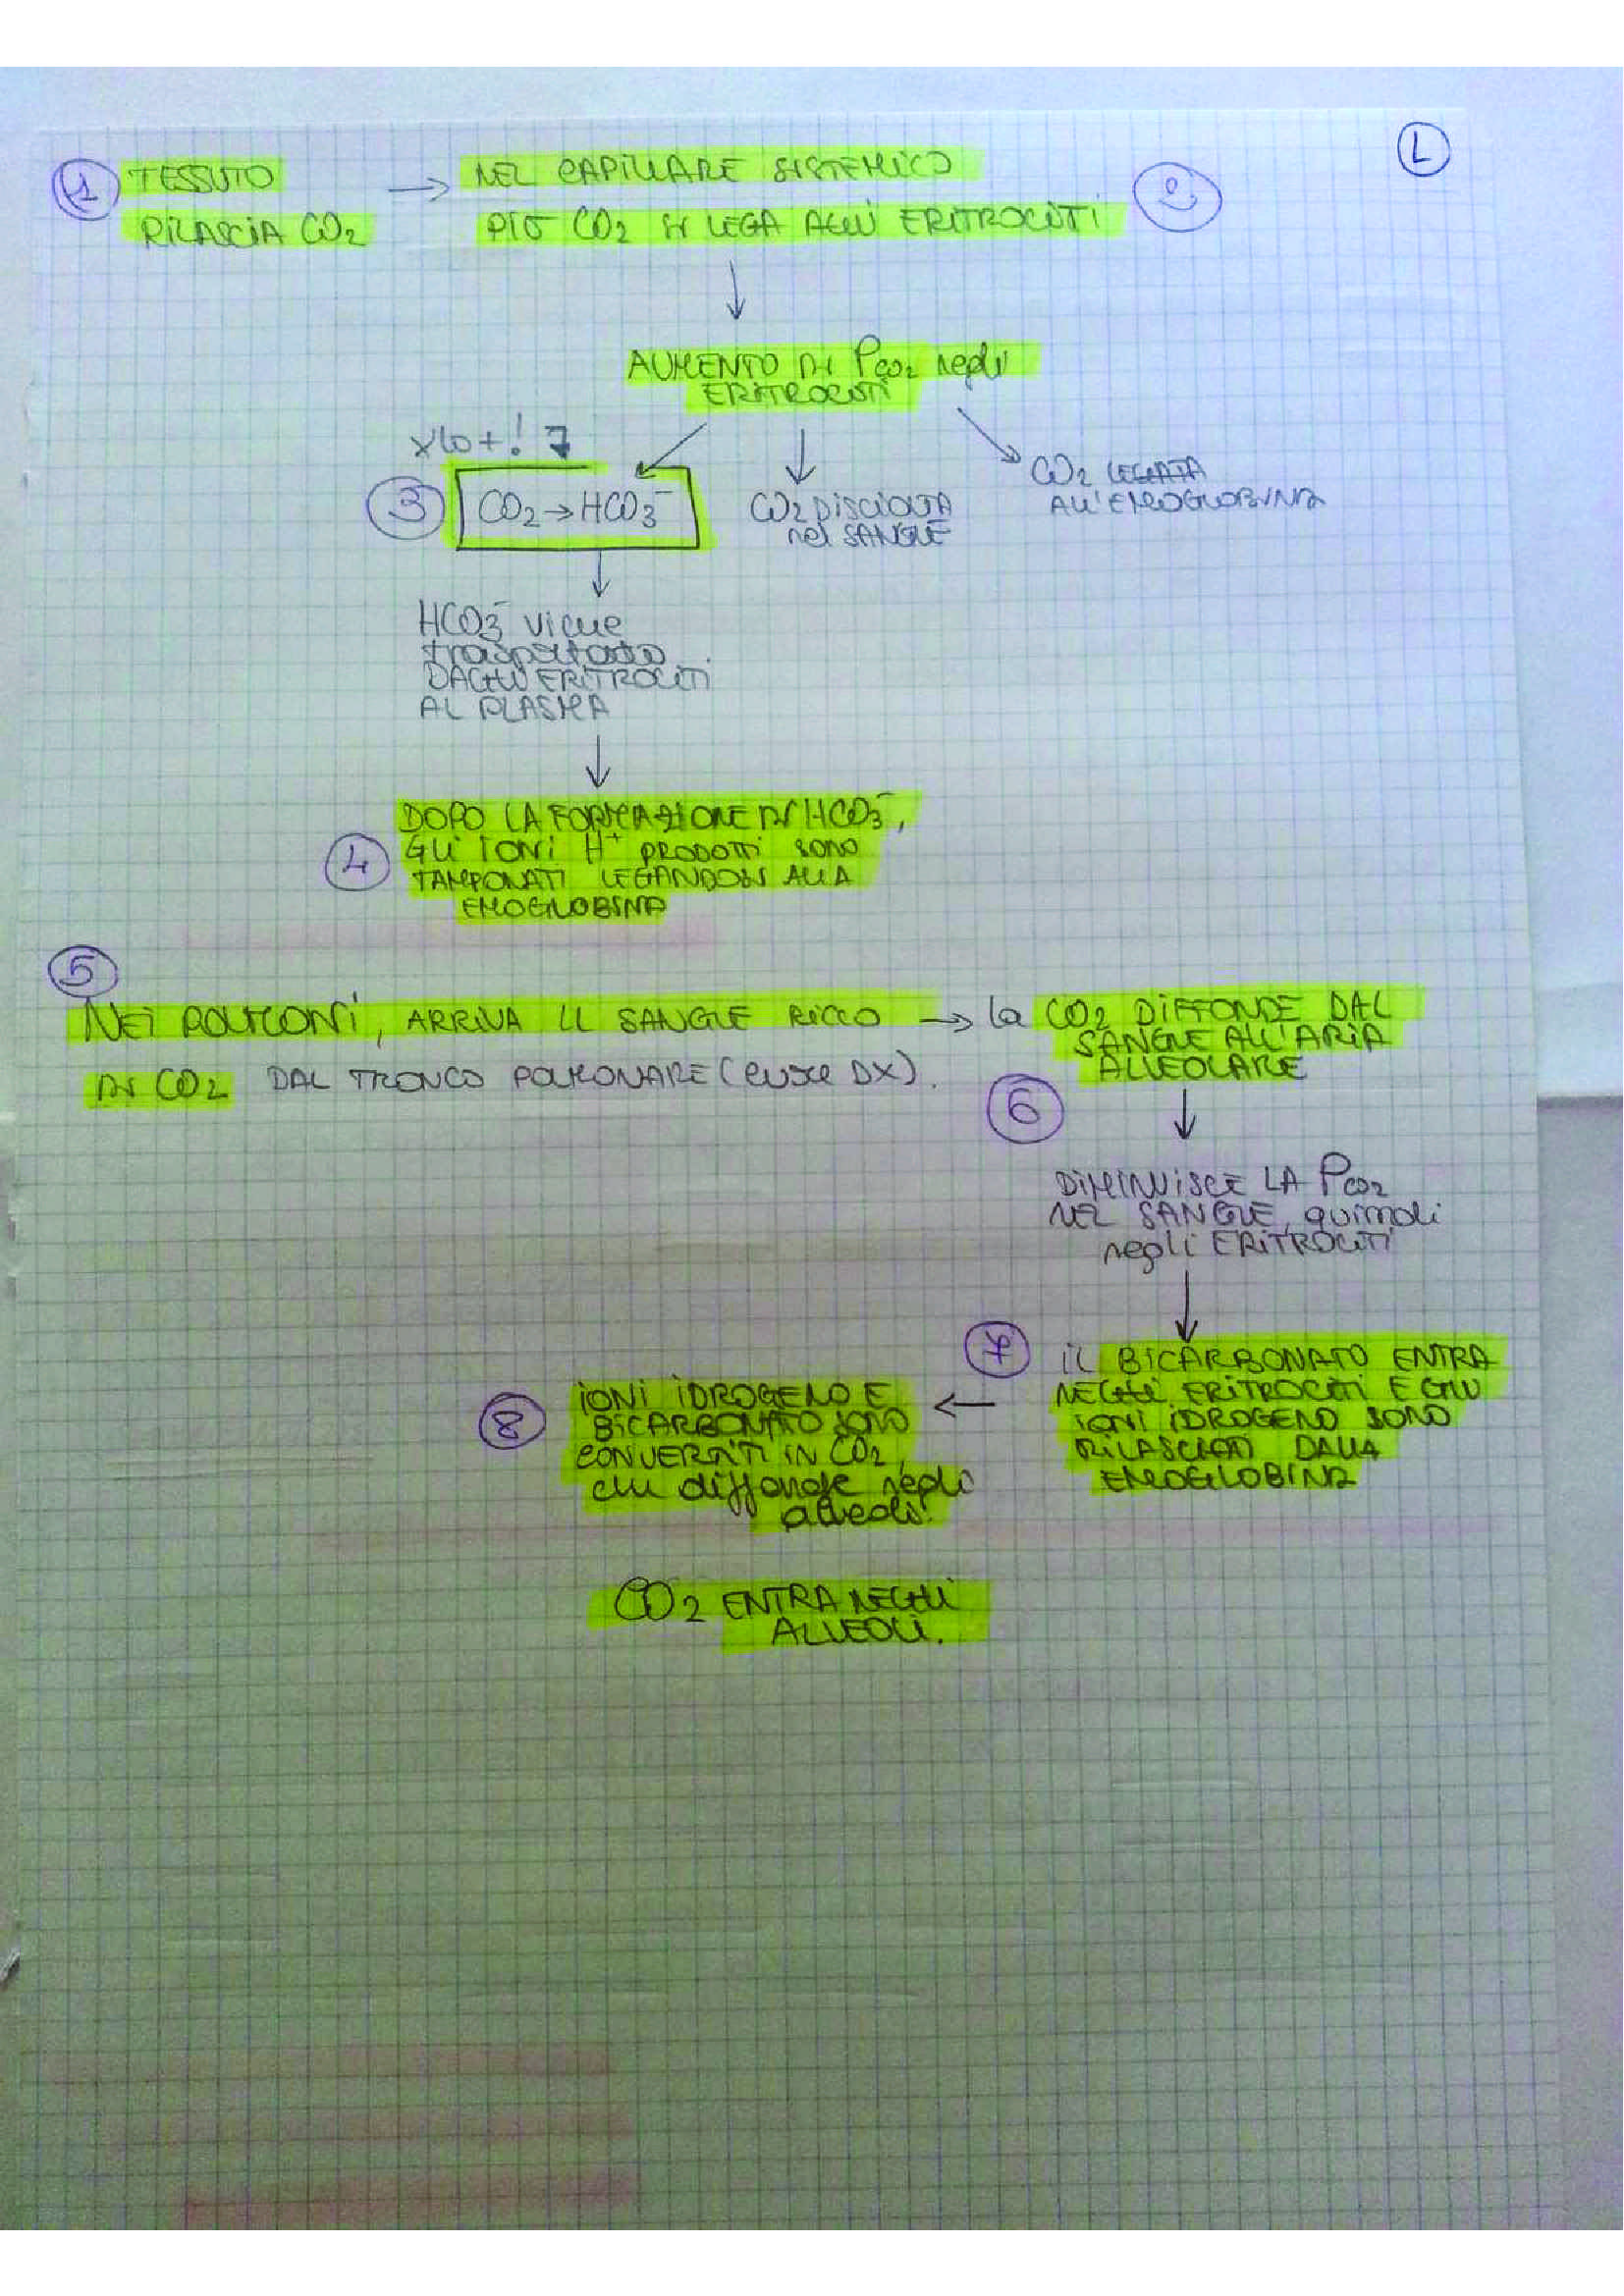 L
1 TESSUTO
RILASCIA CO2
→ NEL CAPILLARE SISTEMICO
PIÙ CO2 SI LEGA AGLI ERITROCITI
2
AUMENTO DI PCO2 negli
ERITROCITI
x lo + !
3 CO2 → HCO3-
CO2 DISCIOLTA
nel SANGUE
CO2 LEGATA
ALL'EMOGLOBINA
HCO3- viene
trasportato
DAGLI ERITROCITI
AL PLASMA
4
DOPO LA FORMAZIONE DI HCO3-,
GLI IONI H+ PRODOTTI SONO
TAMPONATI LEGANDOSI ALLA
EMOGLOBINA
5
NEI POLMONI, ARRIVA IL SANGUE RICCO
DI CO2 DAL TRONCO POLMONARE (CUORE DX).
→ la CO2 DIFFONDE DAL
SANGUE ALL'ARIA
ALVEOLARE
6
DIMINUISCE LA PCO2
NEL SANGUE, quindi
negli ERITROCITI
7
IL BICARBONATO ENTRA
NEGLI ERITROCITI E GLI
IONI IDROGENO SONO
RILASCIATI DALLA
EMOGLOBINA
8
IONI IDROGENO E
BICARBONATO SONO
CONVERTITI IN CO2,
che diffonde negli
alveoli.
CO2 ENTRA NEGLI
ALVEOLI.